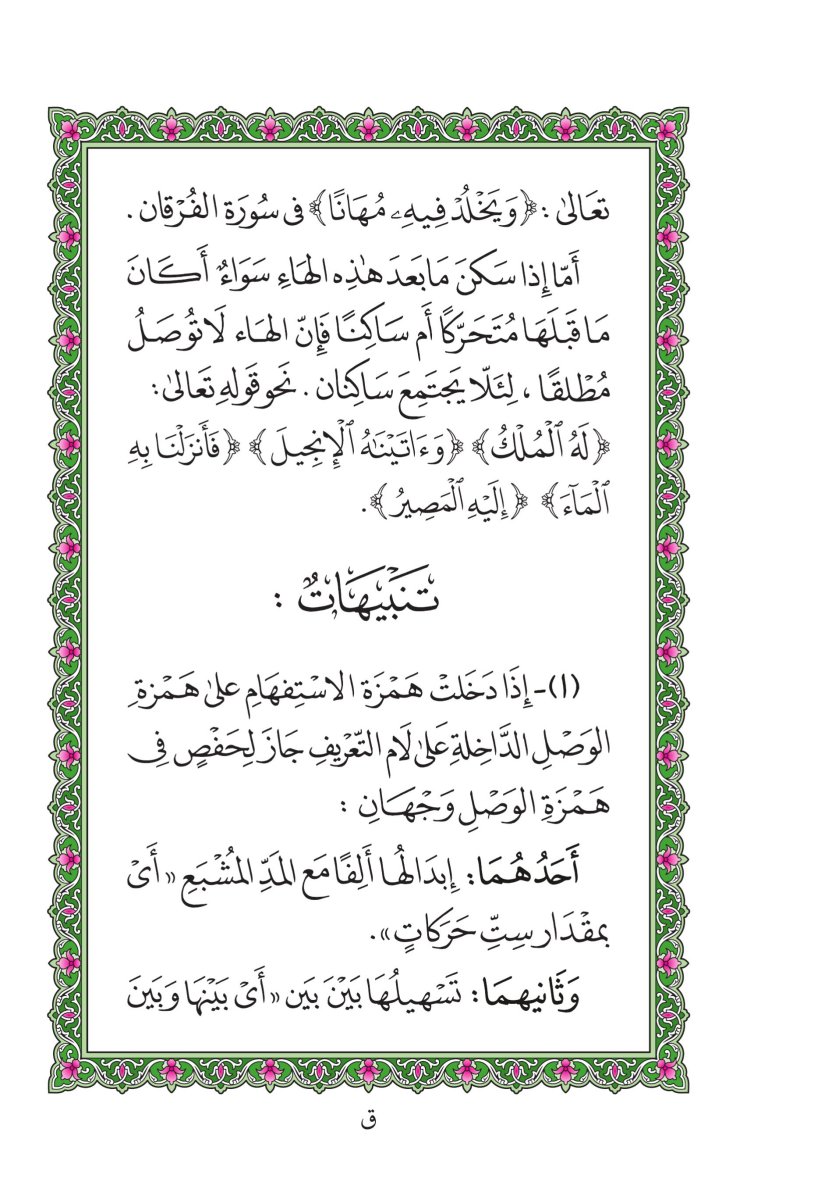 تعَالىٰ : ﴿وَيَخۡلُدۡ فِيهِۦ مُهَانًا﴾ فى سُورَة الفُرْقان .
أَمّا إِذا سَكنَ مَابَعدَ هٰذِه الهَاءِ سَوَاءٌ أَكَانَ
مَا قَبلَهَا مُتَحَرّكًا أَم سَاكِنًا فَإِنّ الهَاء لَا تُوصَلُ
مُطْلقًا ، لِئَلّا يَجتَمِعَ سَاكِنان . نَحو قَولهِ تَعَالىٰ:
﴿لَهُ ٱلۡمُلۡكُ﴾ ﴿وَءَاتَيۡنَٰهُ ٱلۡإِنجِيلَ﴾ ﴿فَأَنزَلۡنَا بِهِ
ٱلۡمَآءَ﴾ ﴿إِلَيۡهِ ٱلۡمَصِيرُ﴾.
تَنبِيْهَاتٌ :
(١)- إِذَا دَخَلَتْ هَمْزَة الاسْتِفهَامِ علىٰ هَمْزةِ
الوَصْلِ الدَّاخِلةِ عَلىٰ لَام التّعْريفِ جَازَ لِحَفْصٍ فِى
هَمْزَةِ الوَصْلِ وَجْهَانِ :
أَحَدُهُمَا: إِبدَالهُا أَلِفًا مَع المَدِّ المُشْبَعِ «أَىْ
بمقْدَار سِتِّ حَرَكاتٍ».
وَثَانيهمَا: تَسْهيلُهَا بَيْنَ بَين «أَىْ بَيْنهَا وَبَينَ
ق